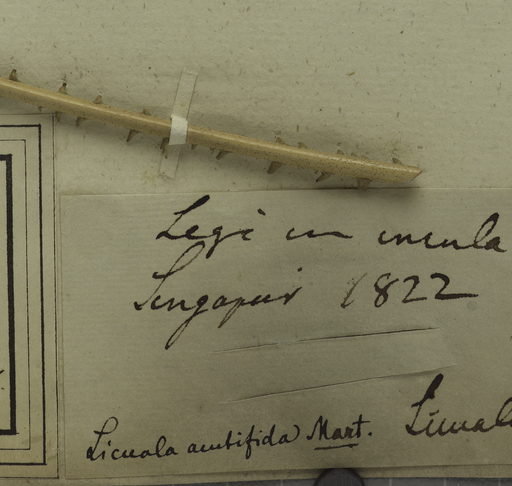 Legi in insula
Singapur 1822
Licuala acutifida Mart.